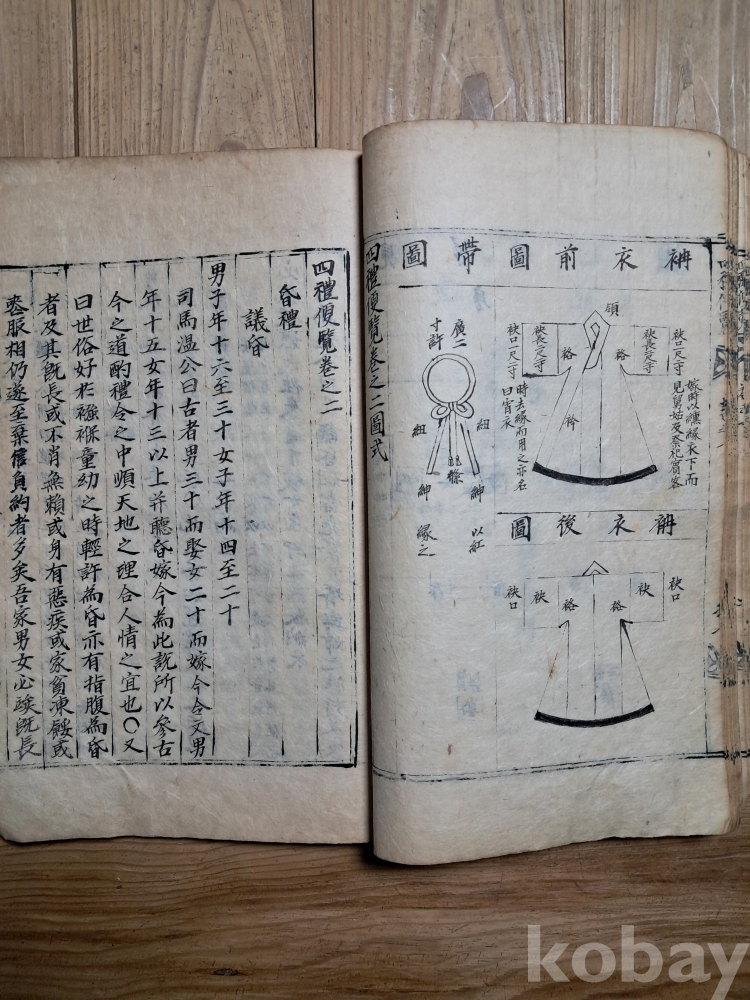 四禮便覽卷之二圖式
袡衣前圖
帶圖
領
袂口一尺二寸
袂長二尺二寸
袼
袼
袂長二尺二寸
袂口一尺二寸
衿
嫁時以纁緣衣下而
見舅姑及祭祀賓客
時去緣而用之亦名
曰宵衣
廣二
寸許
紐
紐
紳
紳
以紅
緣之
袡衣後圖
袂口
袂
袼
袼
袂
袂口
四禮便覽卷之二
昏禮
議昏
男子年十六至三十女子年十四至二十
司馬溫公曰古者男三十而娶女二十而嫁今令文男
年十五女年十三以上并聽昏嫁今為此說所以參古
今之道酌禮令之中順天地之理合人情之宜也○又
曰世俗好於襁褓童幼之時輕許為昏亦有指腹為昏
者及其旣長或不肖無賴或身有惡疾或家貧凍餒或
喪服相仍遂至棄信負約者多矣吾家男女必俟旣長
kobay